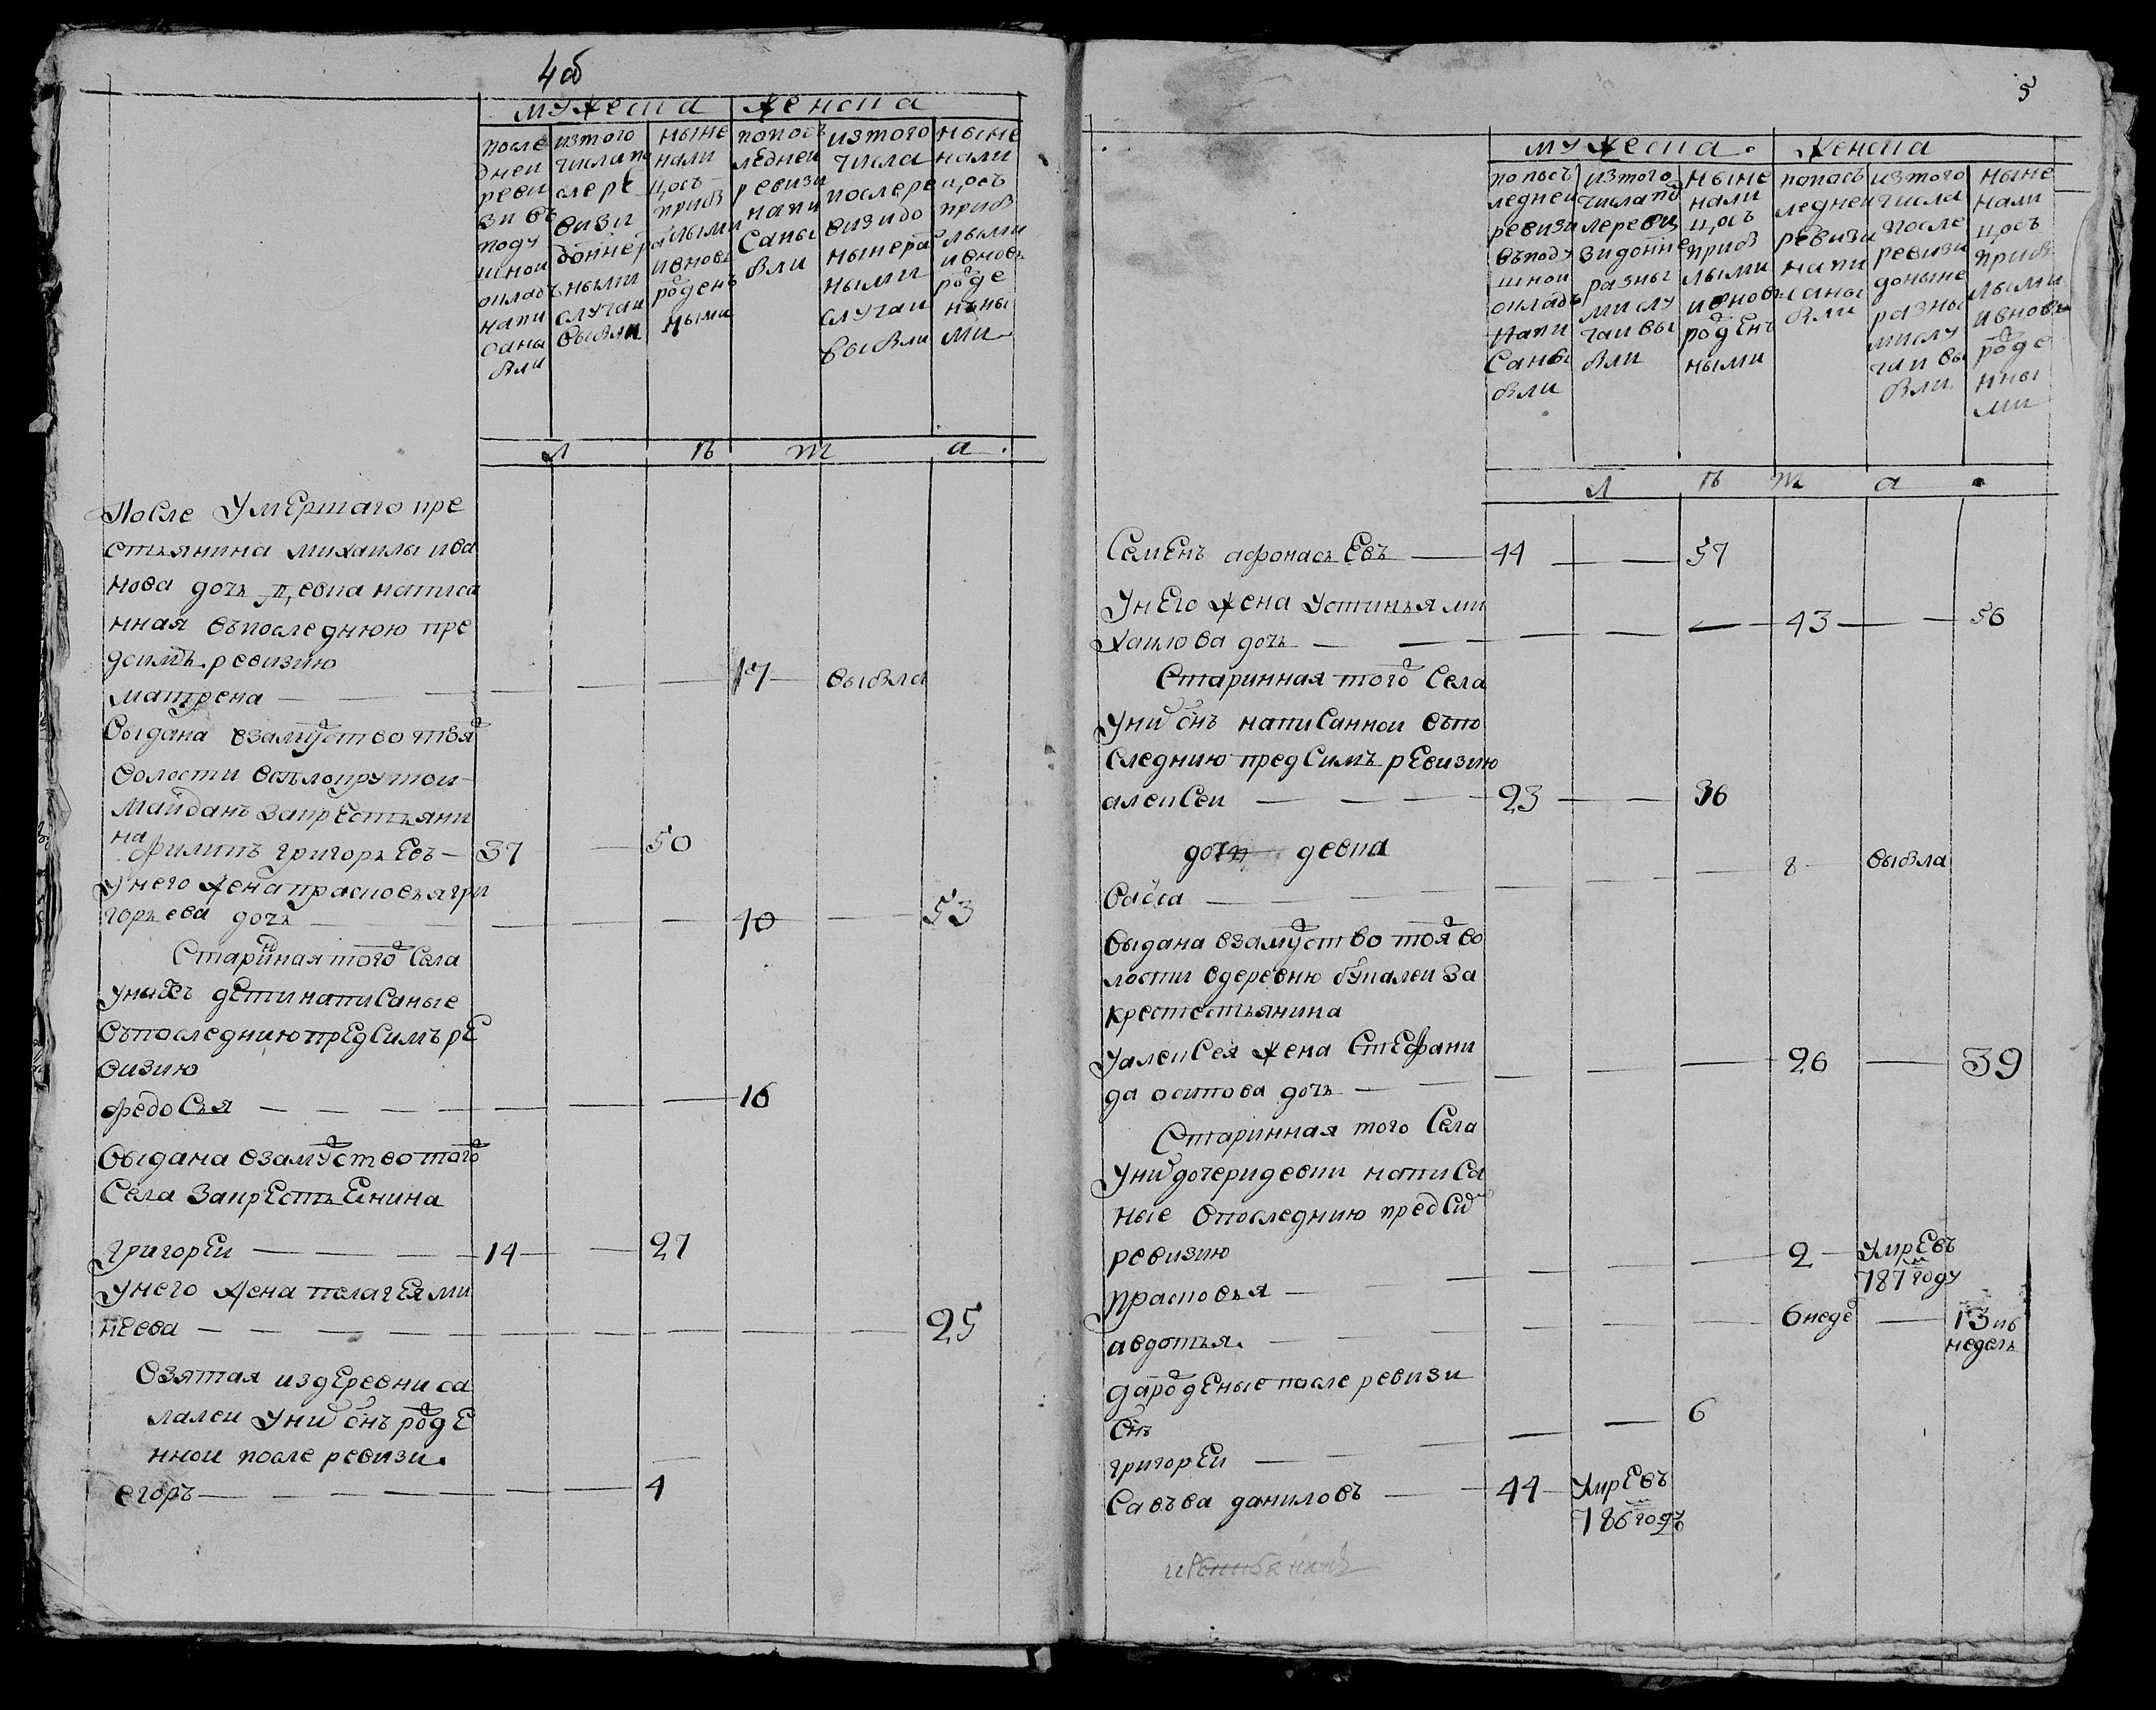 4об
мужеска женска
после
дней
реви
зи въ
поду
шной
окладъ
напи
саны
были
изтого
числа по
слере
визи
донне р
ными
случаи
выбыли
ныне
нали
цось
приб
лыми
ивновь
роден
ными
попосъ
ледней
ревизи
напи
саны
были
изтого
числа
послере
визидо
нынера
ными
случаи
выбыли
ныне
нали
цось
приб
лыми
ивновь
роде
нны
ми
л ѣ т а.
После умершаго кре
стьянина михаилы ива
нова дочь девка написа
нная въпоследнюю пре
дсимъ ревизию
матрена — 17 выбла
выдана взамуство тоя
волости всело крутои
майданъ закрестьяни
на
филипъ григорьевъ — 37 — 50
унего жена прасковья гри
горьева дочь — 40 — 53
Старинная того села
унихъ дети написаные
въпоследнию предсимъ ре
визию
федосья — 16
выдана взамуство того
села закрестьенина
григореи — 14 — 27
унего жена пелагея ми
неева — 25
взятая издеревни са
лалеи уних снъ роде
ннои после ревизи.
егоръ — 4
5
мужеска. женска
попосъ
ледней
ревизи
въподу
шной
окладъ
напи
саны
были
изтого
числапо
слереви
зидонне
разны
мислу
чаивы
были
ныне
нали
цось
приб
лыми
ивновь
роден
ными
попосъ
ледней
ревизи
напи
саны
были
изтого
числа
после
ревизи
доныне
разны
мислу
чаивы
были
ныне
нали
цось
приб
лыми
ивновь
роде
нны
ми
л ѣ т а.
Семенъ афонасьевъ — 44 — 57
унего жена устинья ми
хаилова дочь — 43 — 56
Старинная того села
уних снъ написаннои въпо
следнию предсимъ ревизию
алексеи — 23 — 36
дочь девка
васса — 8 выбла
выдана взамуство тоя во
лости вдеревню букалеи за
крестестьянина
уалексея жена стефани
да осипова дочь — 26 — 39
Старинная того села
уних дочеридевки написа
ные впоследнию предси
ревизию
прасковья — 2 умре въ
787м году
авдотья. — 6 неде — 13 и 6
недель
дароденые после ревизи
снъ
григореи — 6
Савъва даниловъ — 44 умре въ
786м году